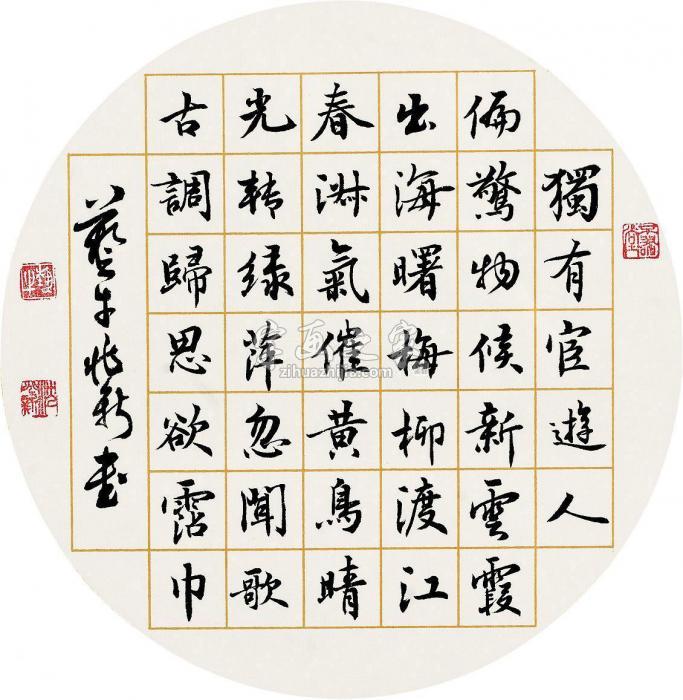 獨有宦遊人
偏驚物候新雲霞
出海曙梅柳渡江
春淑氣催黃鳥晴
光轉綠萍忽聞歌
古調歸思欲霑巾
書
字画之家
zihuazhijia.com